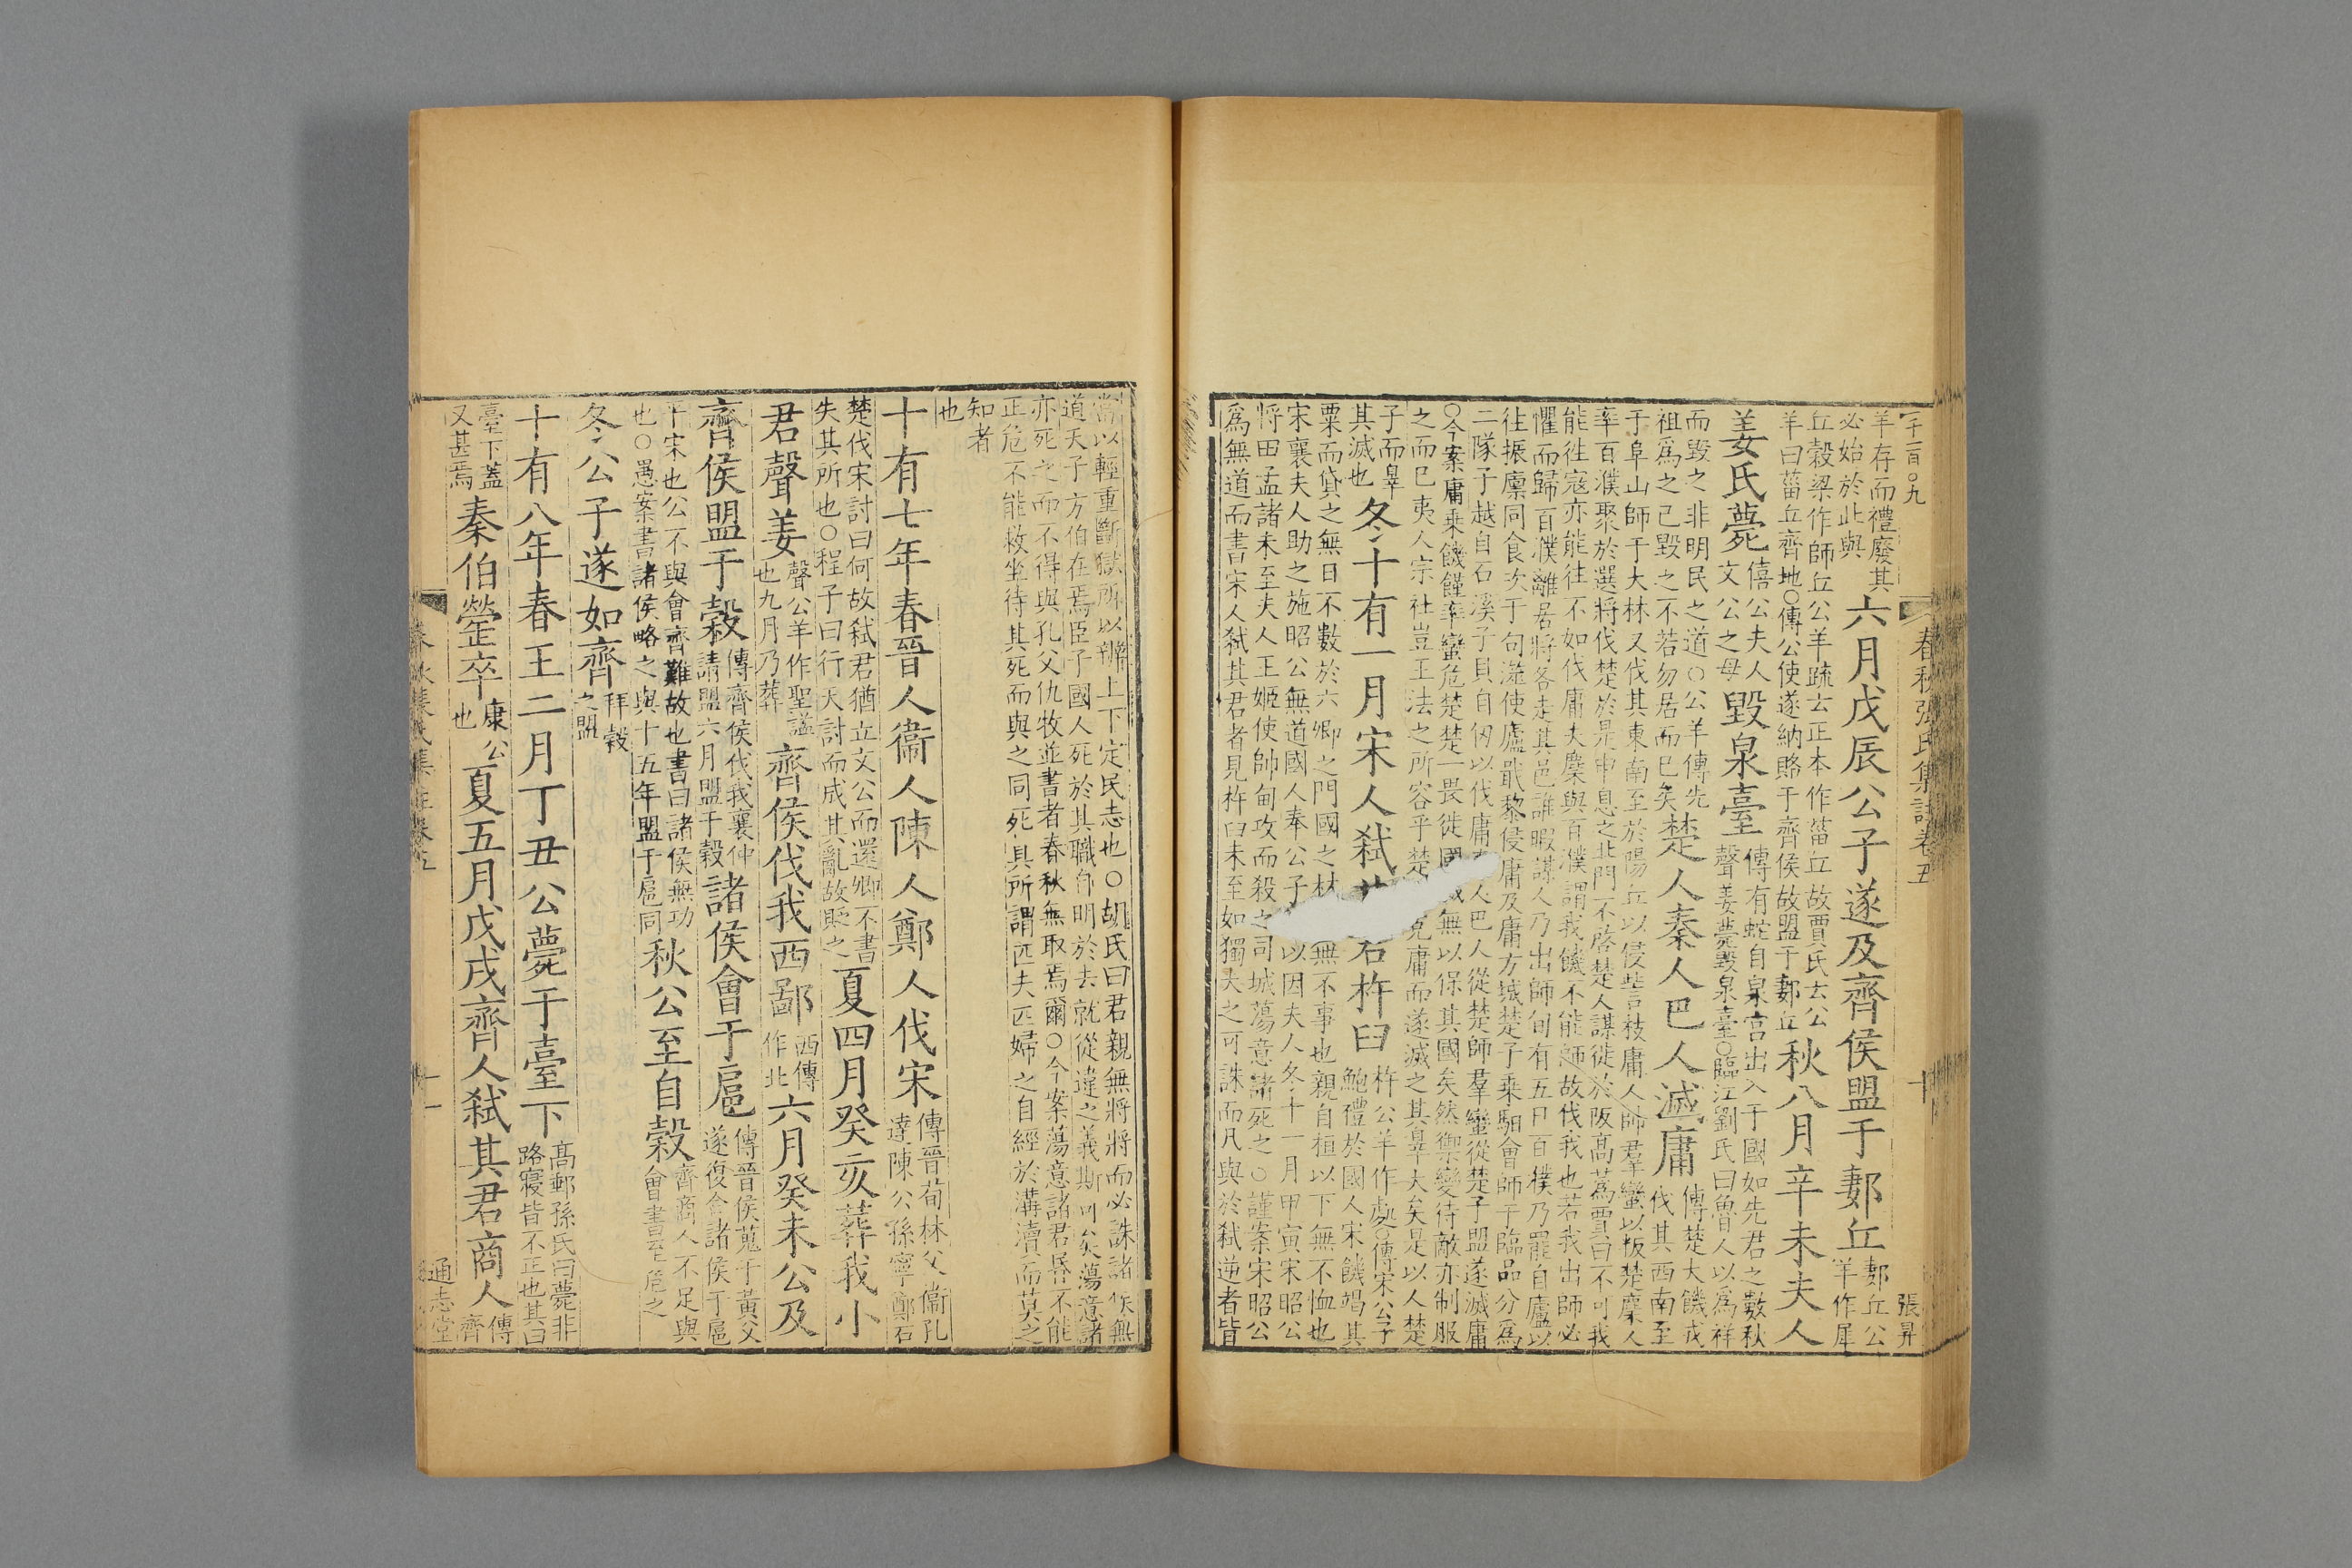 一千二百〇九
春秋張氏集註卷五
十
張昇
羊存而禮廢其
必始於此與
六月戊辰公子遂及齊侯盟于郪丘
郪丘公
羊作犀
丘穀梁作師丘公羊疏云正本作菑丘故賈氏云公
羊曰菑丘齊地○傳公使遂納賂于齊侯故盟于郪丘
秋八月辛未夫人
姜氏薨
僖公夫人
文公之母
毀泉臺
傳有蛇自泉宮出入于國如先君之數秋
聲姜薨毀泉臺○臨江劉氏曰魯人以爲祥
而毀之非明民之道○公羊傳先
祖爲之已毀之不若勿居而已矣
楚人秦人巴人滅庸
傳楚大饑戎
伐其西南至
于阜山師于大林又伐其東南至於陽丘以侵訾枝庸人帥羣蠻以叛楚麇人
率百濮聚於選將伐楚於是申息之北門不啓楚人謀徙於阪高蒍賈曰不可我
能往寇亦能往不如伐庸夫麇與百濮謂我饑不能師故伐我也若我出師必
懼而歸百濮離居將各走其邑誰暇謀人乃出師旬有五日百濮乃罷自廬以
往振廩同食次于句澨使廬戢黎侵庸及庸方城楚子乘馹會師于臨品分爲
二隊子越自石溪子貝自仞以伐庸人巴人從楚師羣蠻從楚子盟遂滅庸
○今案庸乘饑饉率蠻危楚楚一畏徙國滅無以保其國矣然禦變待敵亦制服
之而已夷人宗社豈王法之所容乎楚克庸而遂滅之其辠大矣是以人楚
子而辠
其滅也
冬十有一月宋人弒君杵臼
杵公羊作處○傳宋公子
鮑禮於國人宋饑竭其
粟而貸之無日不數於六卿之門國之材無不事也親自桓以下無不恤也
宋襄夫人助之施昭公無道國人奉公子以因夫人冬十一月甲寅宋昭公
將田孟諸未至夫人王姬使帥甸攻而殺之司城蕩意諸死之○謹案宋昭公
爲無道而書宋人弒其君者見杵臼未至如獨夫之可誅而凡與於弒逆者皆
當以輕重斷獄所以辨上下定民志也○胡氏曰君親無將將而必誅諸侯無
道天子方伯在焉臣子國人死於其職自明於去就從違之義斯可矣蕩意諸
亦死之而不得與孔父仇牧並書者春秋無取焉爾○今案蕩意諸君昏不能
正危不能救坐待其死而與之同死其所謂匹夫匹婦之自經於溝瀆而莫之
知者
也
十有七年春晉人衞人陳人鄭人伐宋
傳晉荀林父衞孔
達陳公孫寧鄭石
楚伐宋討曰何故弒君猶立文公而還卿不書
失其所也○程子曰行天討而成其亂故貶之
夏四月癸亥葬我小
君聲姜
聲公羊作聖謚
也九月乃葬
齊侯伐我西鄙
西傳
作北
六月癸未公及
齊侯盟于穀
傳齊侯伐我襄仲
請盟六月盟于穀
諸侯會于扈
傳晉侯蒐于黃父
遂復合諸侯于扈
平宋也公不與會齊難故也書曰諸侯無功
也○愚案書諸侯略之與十五年盟于扈同
秋公至自穀
齊商人不足與
會書至危之
冬公子遂如齊
拜穀
之盟
十有八年春王二月丁丑公薨于臺下
高郵孫氏曰薨非
路寢皆不正也其曰
臺下蓋
又甚焉
秦伯罃卒
康公
也
夏五月戊戌齊人弒其君商人
傳
齊
春秋張氏集註卷五
十一
通志堂